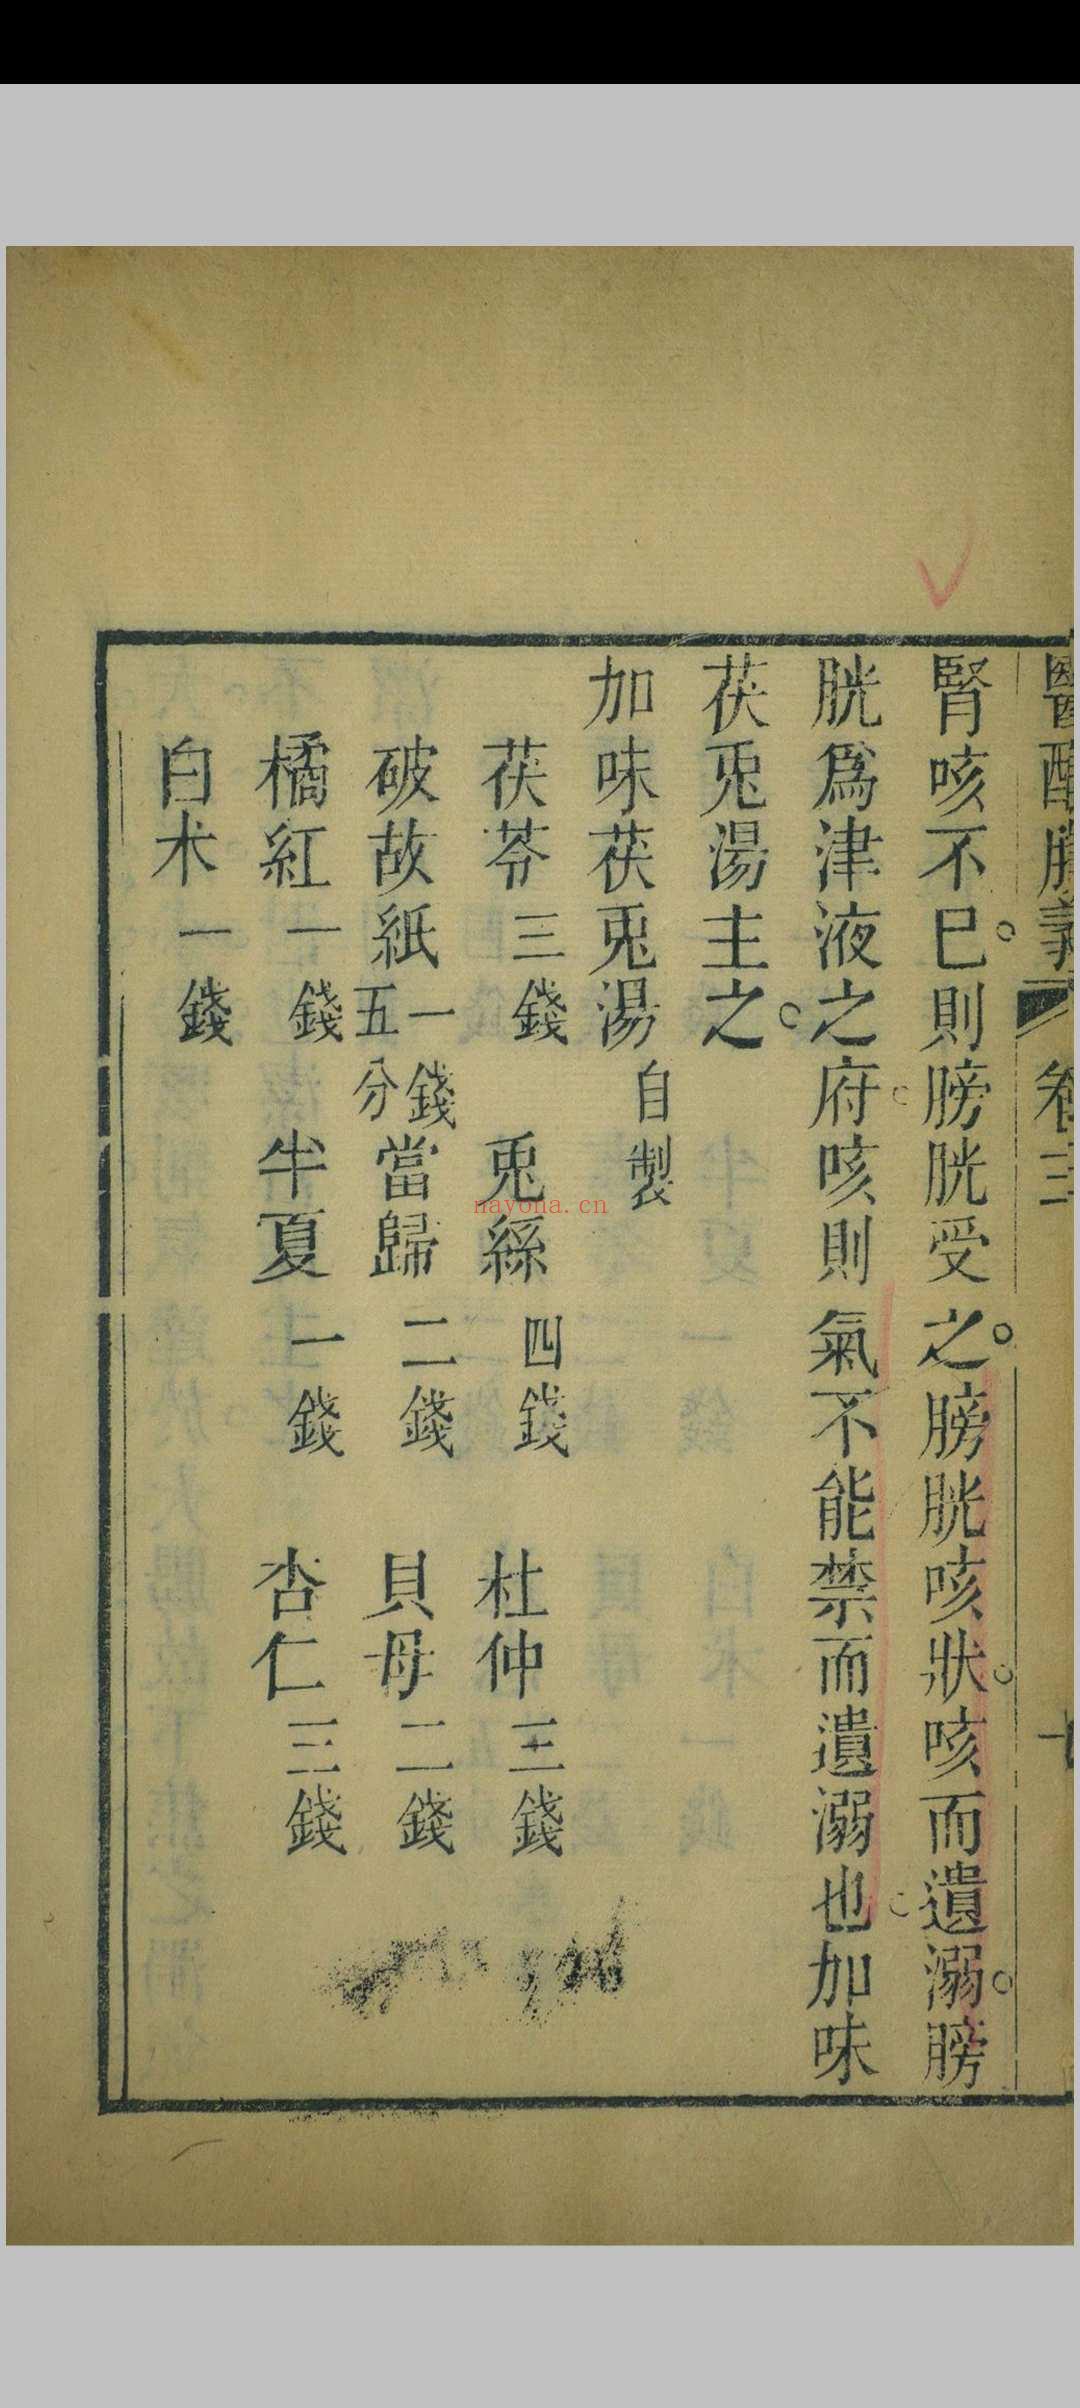 醫醇賸義 卷三
腎咳不已則膀胱受之膀胱咳狀咳而遺溺膀
胱爲津液之府咳則氣不能禁而遺溺也加味
茯兎湯主之
加味茯兎湯自製
茯苓三錢 兎絲四錢 杜仲三錢
破故紙一錢五分 當歸二錢 貝母二錢
橘紅一錢 半夏一錢 杏仁三錢
白朮一錢
nayona.cn